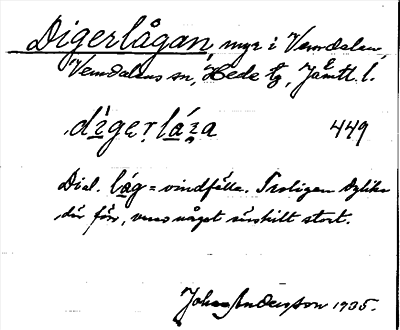 Digerlågan, myr i Vemdalen,
Vemdalens sn, Hede tg, Jämtl. l.
dìgerláʒa 449
Dial. låg = vindfälle. Troligen dylika
där förr, vars något särskilt stort.
Johan Andersson 1935.